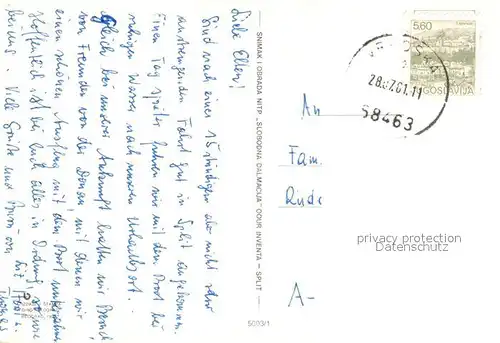 Liebe Ellen!
Sind nach einer 15 stündigen aber nicht sehr
anstrengenden Fahrt gut in Split angekommen.
Einen Tag später fuhren wir mit dem Boot bei
ruhigem Wasser nach unserem Urlaubsort.
Gleich bei unserer Ankunft hatten wir Besuch
von Freunden von der Donau, mit denen wir
einen schönen Ausflug mit dem Boot unternahmen
Hoffentlich ist bei Euch alles in Ordnung
Viele Grüße und
SNIMAK I OBRADA NITP „SLOBODNA DALMACIJA" OOUR INVENTA – SPLIT
5003/1
5,60
JUGOSLAVIJA
28.07.81.11
58463
An
Fam.
A-
privacy protection
Datenschutz